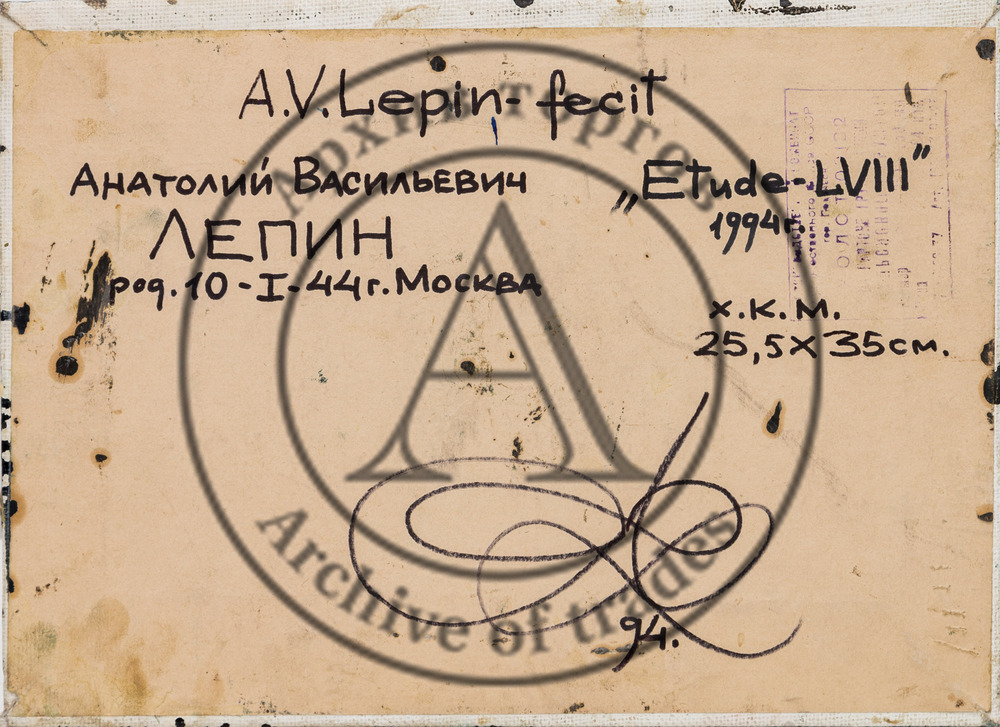 A.V. Lepin - fecit
Анатолий Васильевич
ЛЕПИН
род. 10-I-44г. Москва
„Etude-LVIII”
1994г.
х.к.м.
25,5х35см.
94.
Архив торгов
Archive of trades